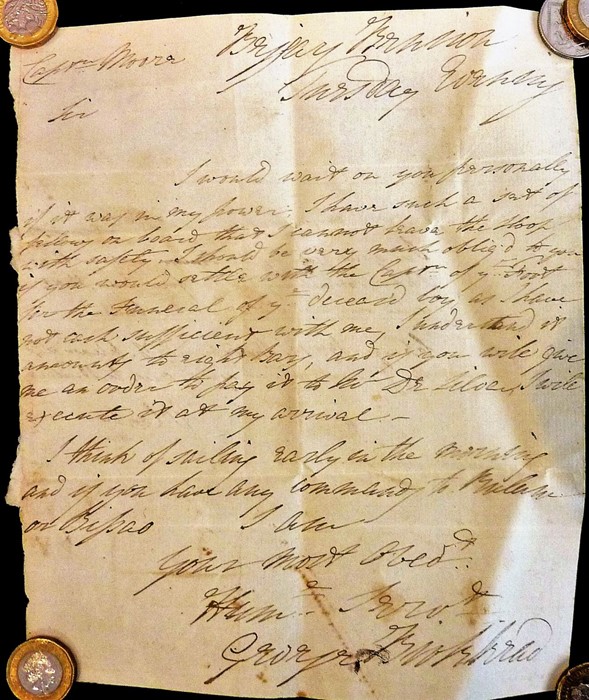 Capt.n Moore
Thursday Evening
Sir
I would wait on you personally
if it was in my power, I have such a set of
fellows on board that I cannot leave the Sloop
with safety. I should be very much oblig'd to you
if you would settle with the Capt.n of y.e Fort
for the Funeral of y.e deceasd boy as I have
not cash sufficient with me, I understand it
amounts to eight Bars, and if you will give
me an order to pay it to Mr De Silva, I will
execute it at my arrival. -
I think of sailing early in the morning
and if you have any commands to
or Bissao I am
Your most Obed.t
Hum.e Serv.t
George